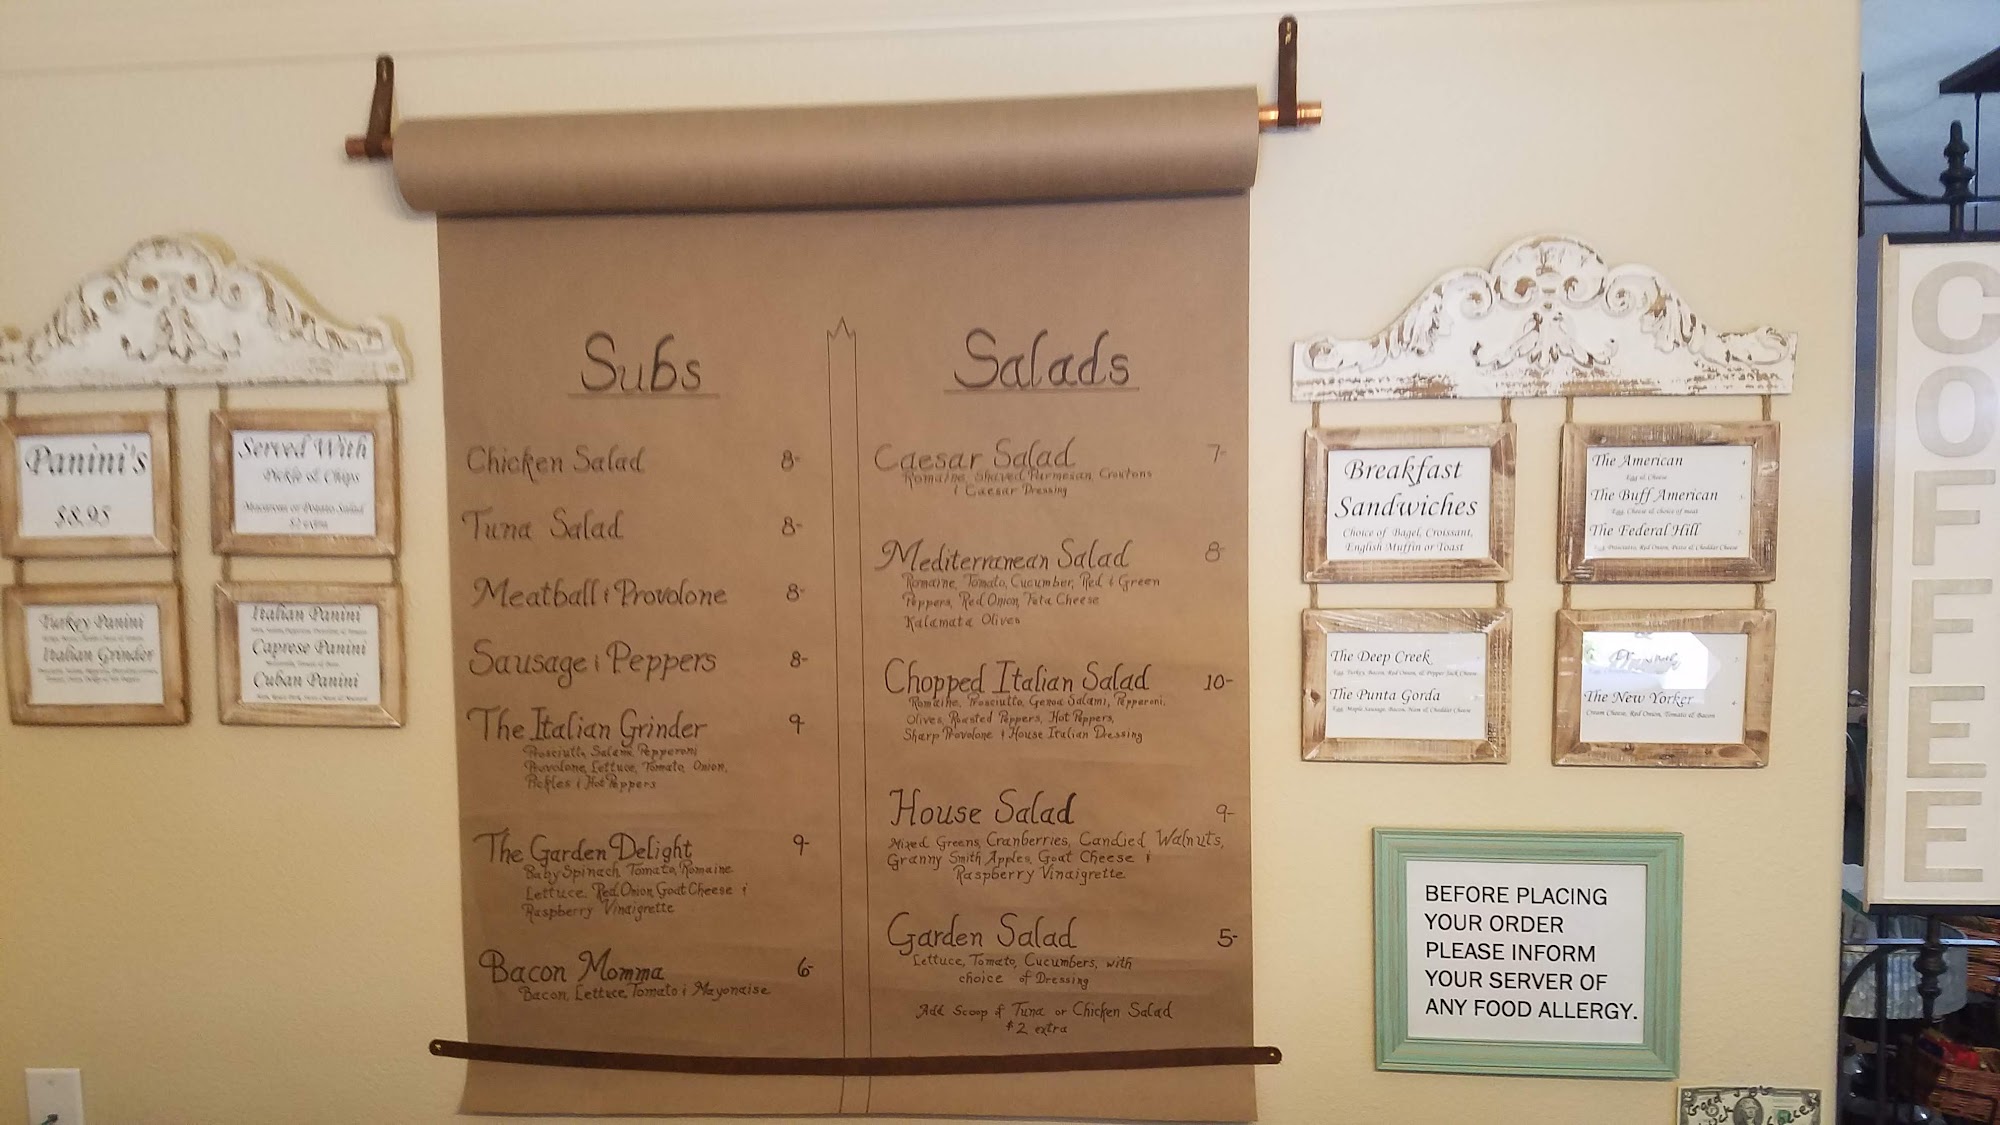 Panini's
$8.95
Served With
Pickle & Chips
Macaroni or Potato Salad
$2 extra
Turkey Panini
Italian Grinder
Italian Panini
Caprese Panini
Cuban Panini
Subs
Chicken Salad 8-
Tuna Salad 8-
Meatball & Provolone 8-
Sausage & Peppers 8-
The Italian Grinder 9
Prosciutto, Salami, Pepperoni
Provolone, Lettuce, Tomato, Onion,
Pickles & Hot Peppers
The Garden Delight 9-
Baby Spinach, Tomato, Romaine
Lettuce, Red Onion, Goat Cheese &
Raspberry Vinaigrette
Bacon Momma 6-
Bacon, Lettuce, Tomato & Mayonaise
Salads
Caesar Salad 7-
Romaine, Shaved Parmesan, Croutons
& Caesar Dressing
Mediterranean Salad 8-
Romaine, Tomato, Cucumber, Red & Green
Peppers, Red Onion, Feta Cheese
Kalamata Olives
Chopped Italian Salad 10-
Romaine, Prosciutto, Genoa Salami, Pepperoni,
Olives, Roasted Peppers, Hot Peppers,
Sharp Provolone & House Italian Dressing
House Salad 9-
Mixed Greens, Cranberries, Candied Walnuts,
Granny Smith Apples, Goat Cheese &
Raspberry Vinaigrette
Garden Salad 5-
Lettuce, Tomato, Cucumbers, with
choice of Dressing
Add Scoop of Tuna or Chicken Salad
$2 extra
Breakfast
Sandwiches
Choice of Bagel, Croissant,
English Muffin or Toast
The American
Egg & Cheese
The Buff American
Egg, Cheese & choice of meat
The Federal Hill
Egg, Prosciutto, Red Onion, Pesto & Cheddar Cheese
The Deep Creek
Egg, Turkey, Bacon, Red Onion, & Pepper Jack Cheese
The Punta Gorda
Egg, Maple Sausage, Bacon, Ham & Cheddar Cheese
The New Yorker
Cream Cheese, Red Onion, Tomato & Bacon
BEFORE PLACING
YOUR ORDER
PLEASE INFORM
YOUR SERVER OF
ANY FOOD ALLERGY.
COFFEE